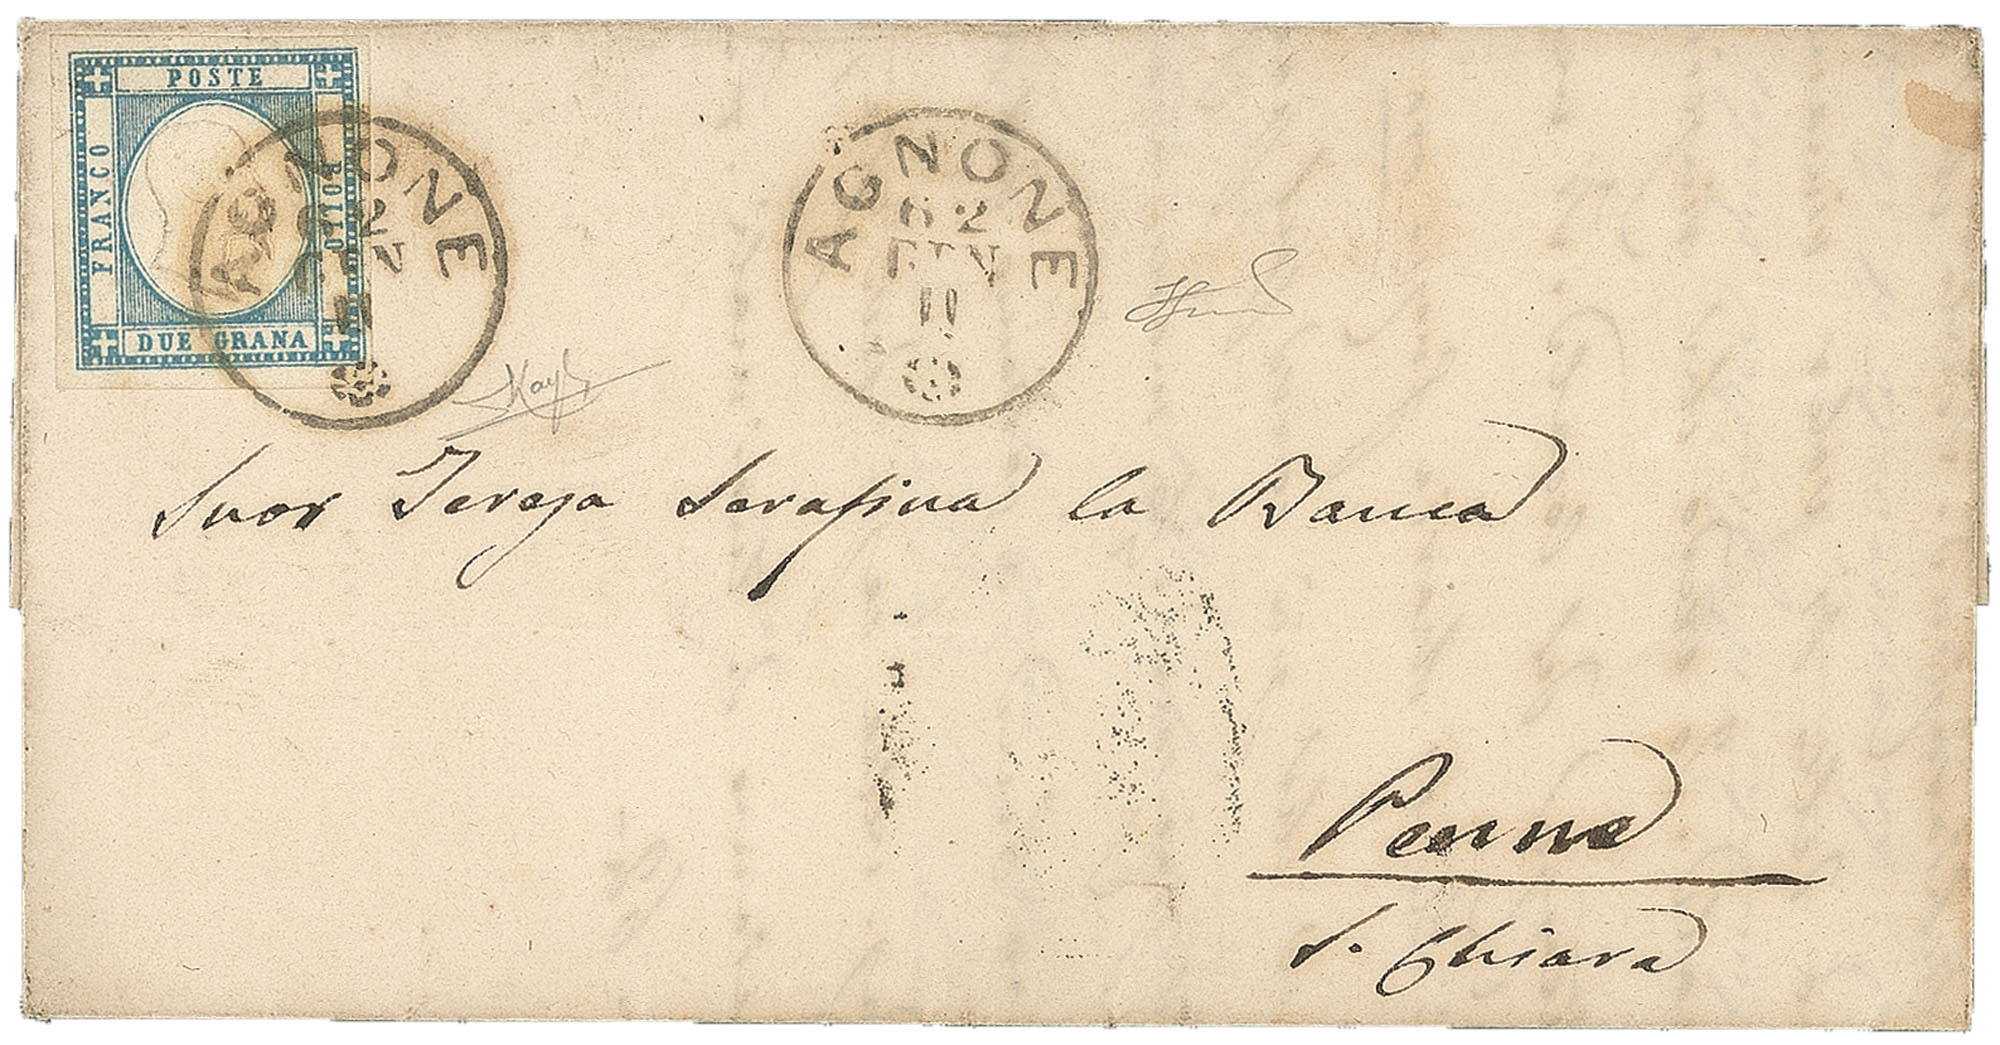 POSTE
FRANCO
BOLLO
DUE GRANA
AGNONE
AGNONE
62
11
Suor Teresa Serafina la Banca
Penne
S. Chiara